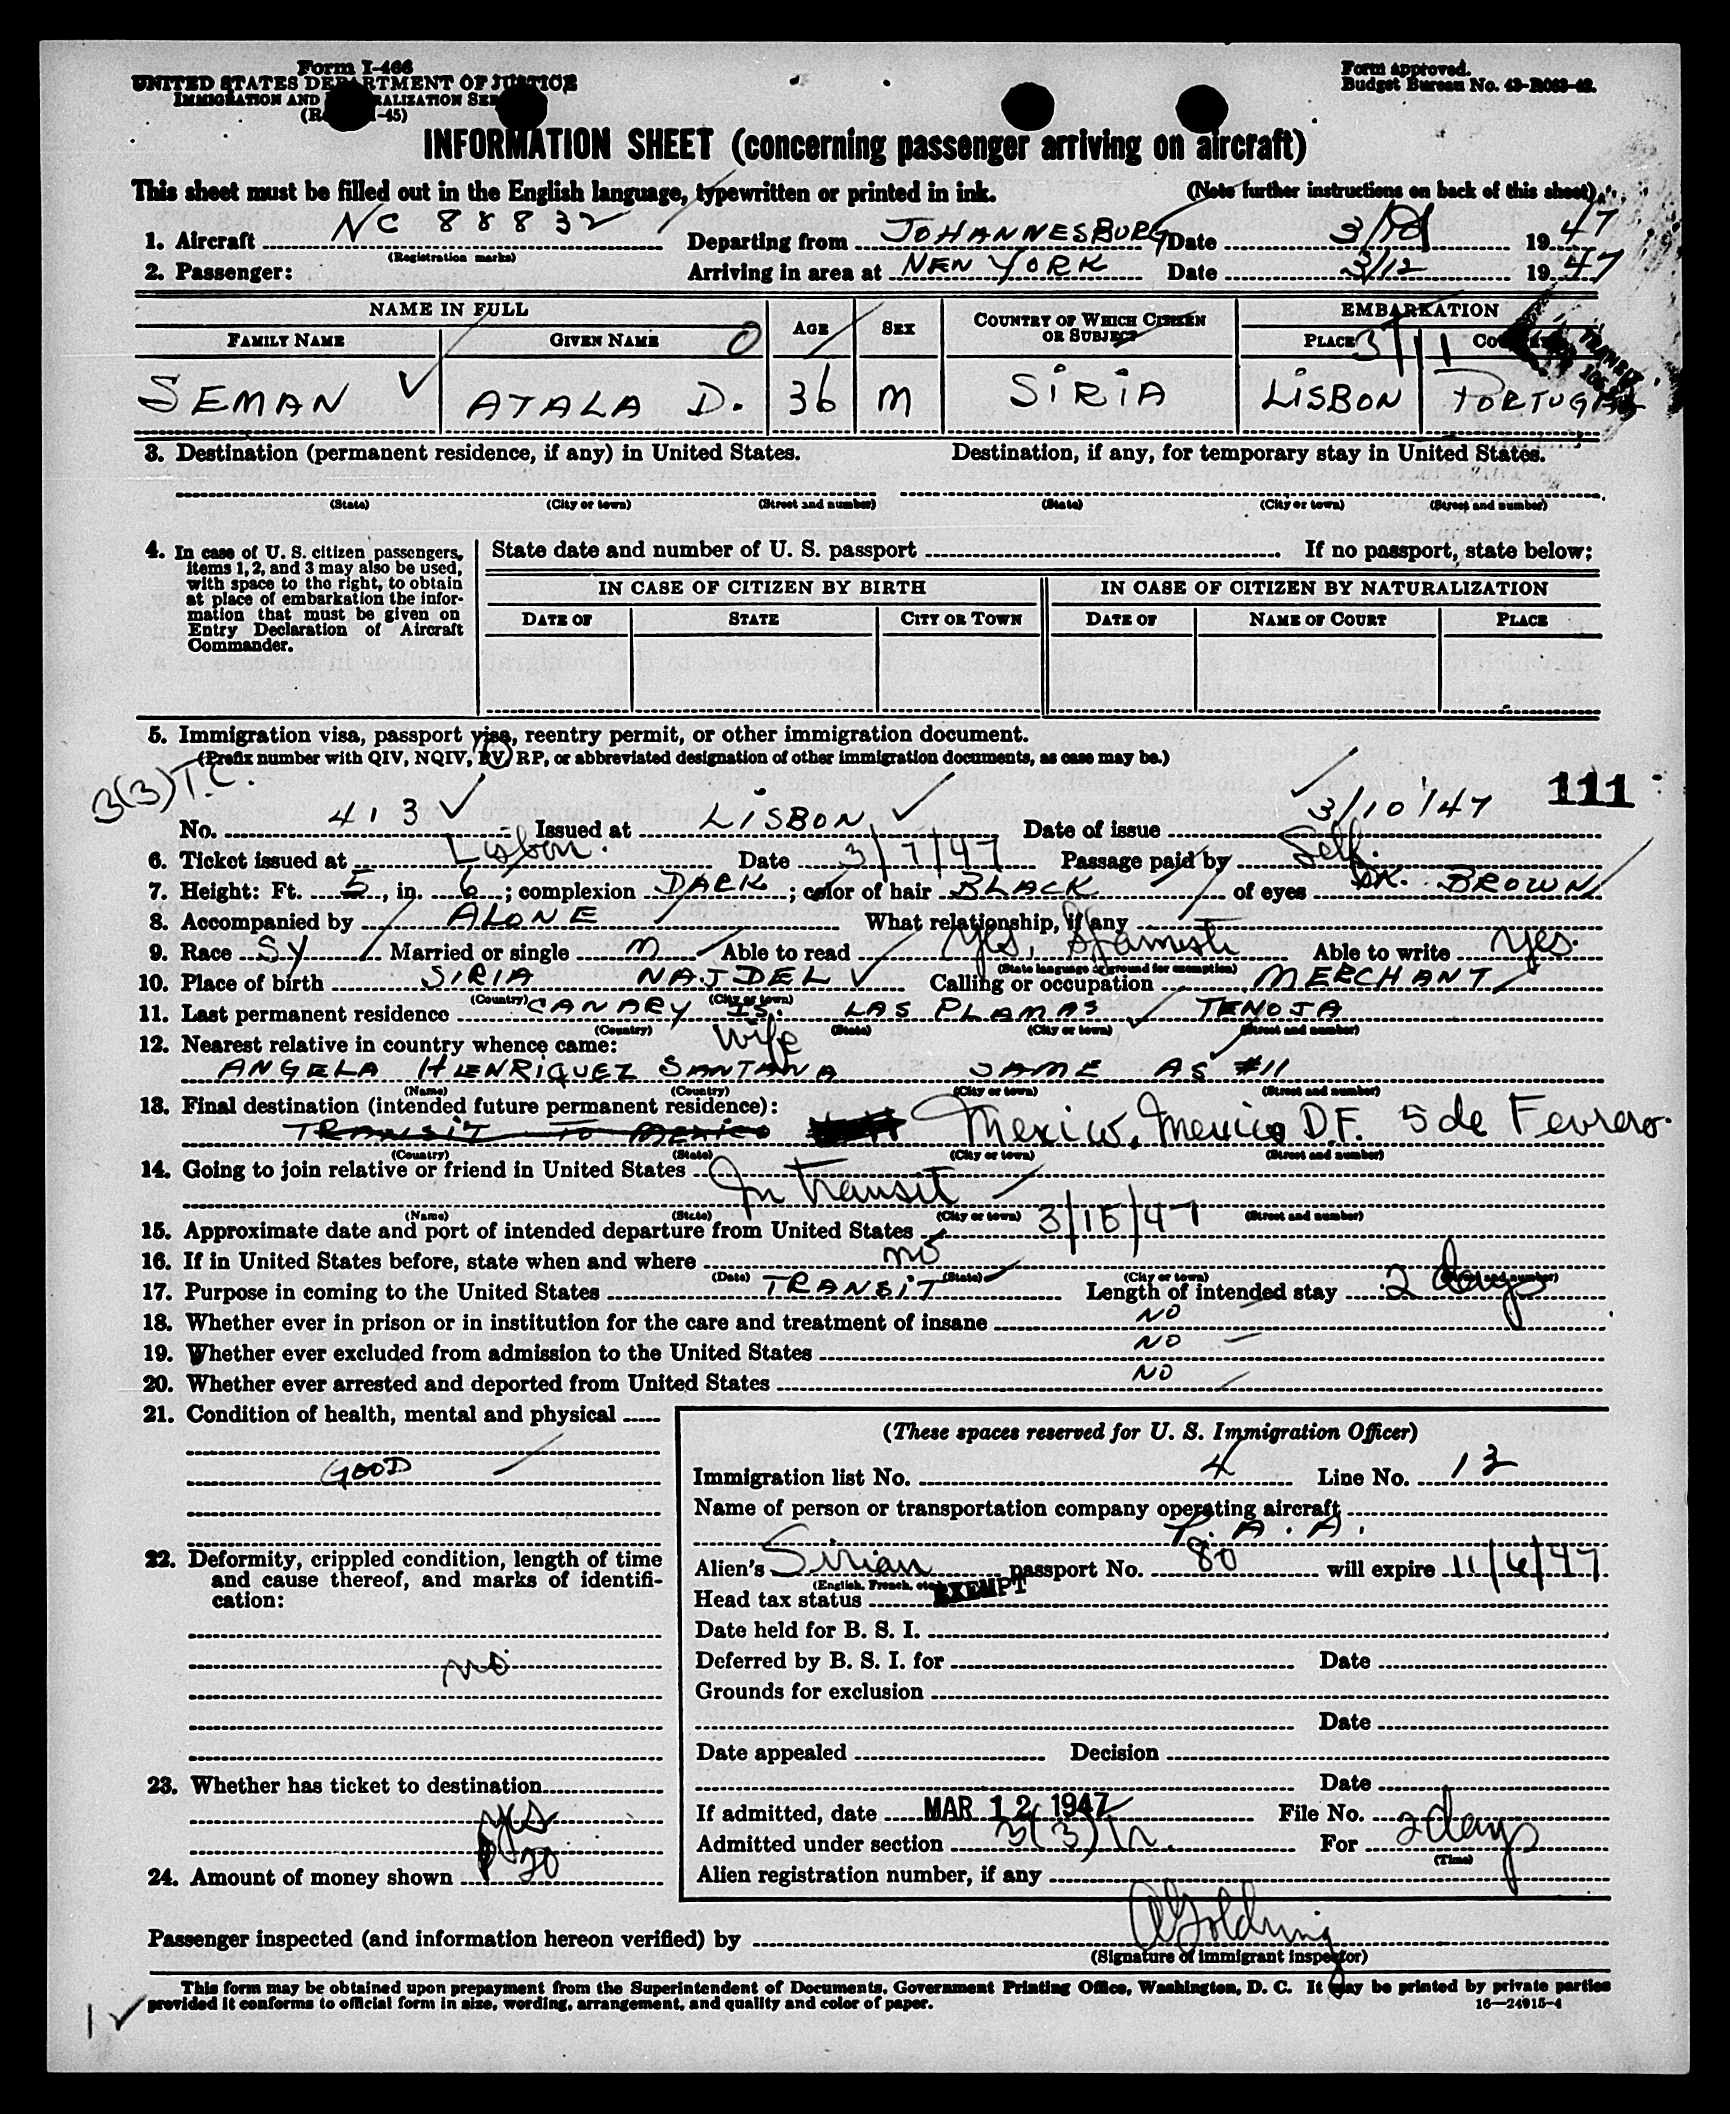 Form I-466
UNITED STATES DEPARTMENT OF JUSTICE
IMMIGRATION AND NATURALIZATION
Form approved.
Budget Bureau No.
INFORMATION SHEET (concerning passenger arriving on aircraft)
This sheet must be filled out in the English language, typewritten or printed in ink. (Note further instructions on back of this sheet)
1. Aircraft NC 88832 Departing from JOHANNESBURG Date 1947
(Registration marks)
2. Passenger: Arriving in area at NEW YORK Date 3/12 1947
NAME IN FULL AGE SEX COUNTRY OF WHICH CITIZEN OR SUBJECT EMBARKATION
FAMILY NAME GIVEN NAME 0 PLACE 3/11
SEMAN ATALA D. 36 M SIRIA LISBON PORTUGAL
3. Destination (permanent residence, if any) in United States. Destination, if any, for temporary stay in United States.
(State) (City or town) (Street and number) (State) (City or town) (Street and number)
4. In case of U. S. citizen passengers, items 1, 2, and 3 may also be used, with space to the right, to obtain at place of embarkation the information that must be given on Entry Declaration of Aircraft Commander.
State date and number of U. S. passport If no passport, state below:
IN CASE OF CITIZEN BY BIRTH IN CASE OF CITIZEN BY NATURALIZATION
DATE OF STATE CITY OR TOWN DATE OF NAME OF COURT PLACE
5. Immigration visa, passport visa, reentry permit, or other immigration document.
(Prefix number with QIV, NQIV, PV, RP, or abbreviated designation of other immigration documents, as case may be.)
3(3) T.C. 111
No. 413 Issued at LISBON Date of issue 3/10/47
6. Ticket issued at Lisbon. Date 3/7/47 Passage paid by Self.
7. Height: Ft. 5, in. 6; complexion DARK; color of hair BLACK of eyes DK. BROWN
8. Accompanied by ALONE What relationship, if any
9. Race SY Married or single M Able to read Yes, Spanish Able to write yes.
(State language or ground for exemption)
10. Place of birth SIRIA NAJDEL Calling or occupation MERCHANT
(Country) (City or town)
11. Last permanent residence CANARY IS. LAS PLAMAS TENOJA
(Country) (State) (City or town) (Street and number)
12. Nearest relative in country whence came: Wife
ANGELA HENRIQUEZ SANTANA SAME AS #11
(Name) (Country) (City or town) (Street and number)
13. Final destination (intended future permanent residence):
TRANSIT TO MEXICO Mexico, Mexico D.F. 5 de Fevrero.
(Country) (State) (City or town) (Street and number)
14. Going to join relative or friend in United States
In Transit
(Name) (State) (City or town) (Street and number)
15. Approximate date and port of intended departure from United States 3/15/47
16. If in United States before, state when and where no
(Date) (State) (City or town) (Street and number)
17. Purpose in coming to the United States TRANSIT Length of intended stay 2 days
18. Whether ever in prison or in institution for the care and treatment of insane NO
19. Whether ever excluded from admission to the United States NO
20. Whether ever arrested and deported from United States NO
21. Condition of health, mental and physical
GOOD
22. Deformity, crippled condition, length of time and cause thereof, and marks of identification:
no
23. Whether has ticket to destination
yes
24. Amount of money shown $20
(These spaces reserved for U. S. Immigration Officer)
Immigration list No. 4 Line No. 12
Name of person or transportation company operating aircraft
P. A. A.
Alien's Sirian passport No. 80 will expire 11/6/47
(English, French, etc.)
Head tax status EXEMPT
Date held for B. S. I.
Deferred by B. S. I. for Date
Grounds for exclusion
Date
Date appealed Decision
Date
If admitted, date MAR 12 1947 File No.
Admitted under section 3(3) For 2 days
(Time)
Alien registration number, if any
Passenger inspected (and information hereon verified) by
(Signature of immigrant inspector)
This form may be obtained upon prepayment from the Superintendent of Documents, Government Printing Office, Washington, D. C. It may be printed by private parties
provided it conforms to official form in size, wording, arrangement, and quality and color of paper. 16—24915-4
1